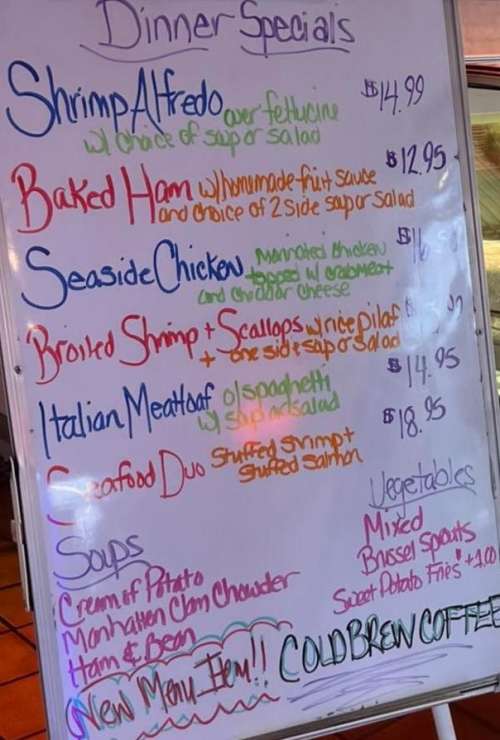 Dinner Specials
Shrimp Alfredo over fettucine $14.99
w/ choice of soup or salad
Baked Ham w/homemade fruit sauce $12.95
and choice of 2 side soup or salad
Seaside Chicken Marinated chicken
topped w/ crabmeat
and cheddar cheese
Broiled Shrimp + Scallops w/rice pilaf
+ one side soup or salad
Italian Meatloaf o/spaghetti $14.95
w/ soup or salad
Seafood Duo Stuffed Shrimp + $18.95
Stuffed Salmon
Vegetables
Mixed
Brussel Sprouts
Sweet Potato Fries +1.00
Soups
Cream of Potato
Manhatten Clam Chowder
Ham & Bean
New Menu Item!! COLD BREW COFFEE